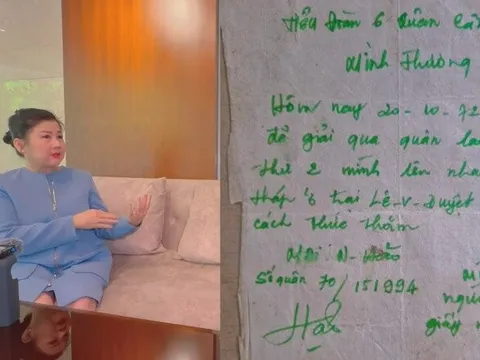 Tiểu Đoàn 6 Quân Cả
Mình Thương
Hôm nay 20-10-72
đã giải qua quân la
thứ 2 mình lên nha
Tháp 6 trại Lê-V-Duyệt
cách thức thăm
Mai N-Hảo
Số quân 70/151994
ngư
giấy